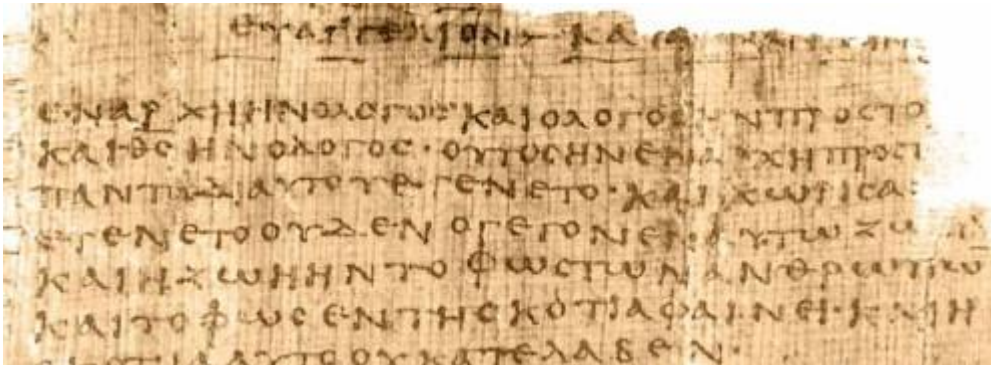 ΕΥΑΓΓΕΛΙΟΝ ΚΑ
ΕΝΑΡΧΗΗΝΟΛΟΓΟϹ ΚΑΙΟΛΟΓΟϹΗΝΠΡΟϹΤΟ
ΚΑΙΘϹΗΝΟΛΟΓΟϹ·ΟΥΤΟϹΗΝΕΝΑΡΧΗΠΡΟϹ
ΠΑΝΤΑΔΙΑΥΤΟΥΕΓΕΝΕΤΟ·ΚΑΙΧΩΡΙϹΑ
ΕΓΕΝΕΤΟΟΥΔΕΝΟΓΕΓΟΝΕΝΕΝΑΥΤΩΖΩ
ΚΑΙΗΖΩΗΗΝΤΟΦΩϹΤΩΝΑΝΘΡΩΠΩ
ΚΑΙΤΟΦΩϹΕΝΤΗϹΚΟΤΙΑΦΑΙΝΕΙ·ΚΑΙΗ
ϹΚΟΤΙΑΑΥΤΟΟΥΚΑΤΕΛΑΒΕΝ·